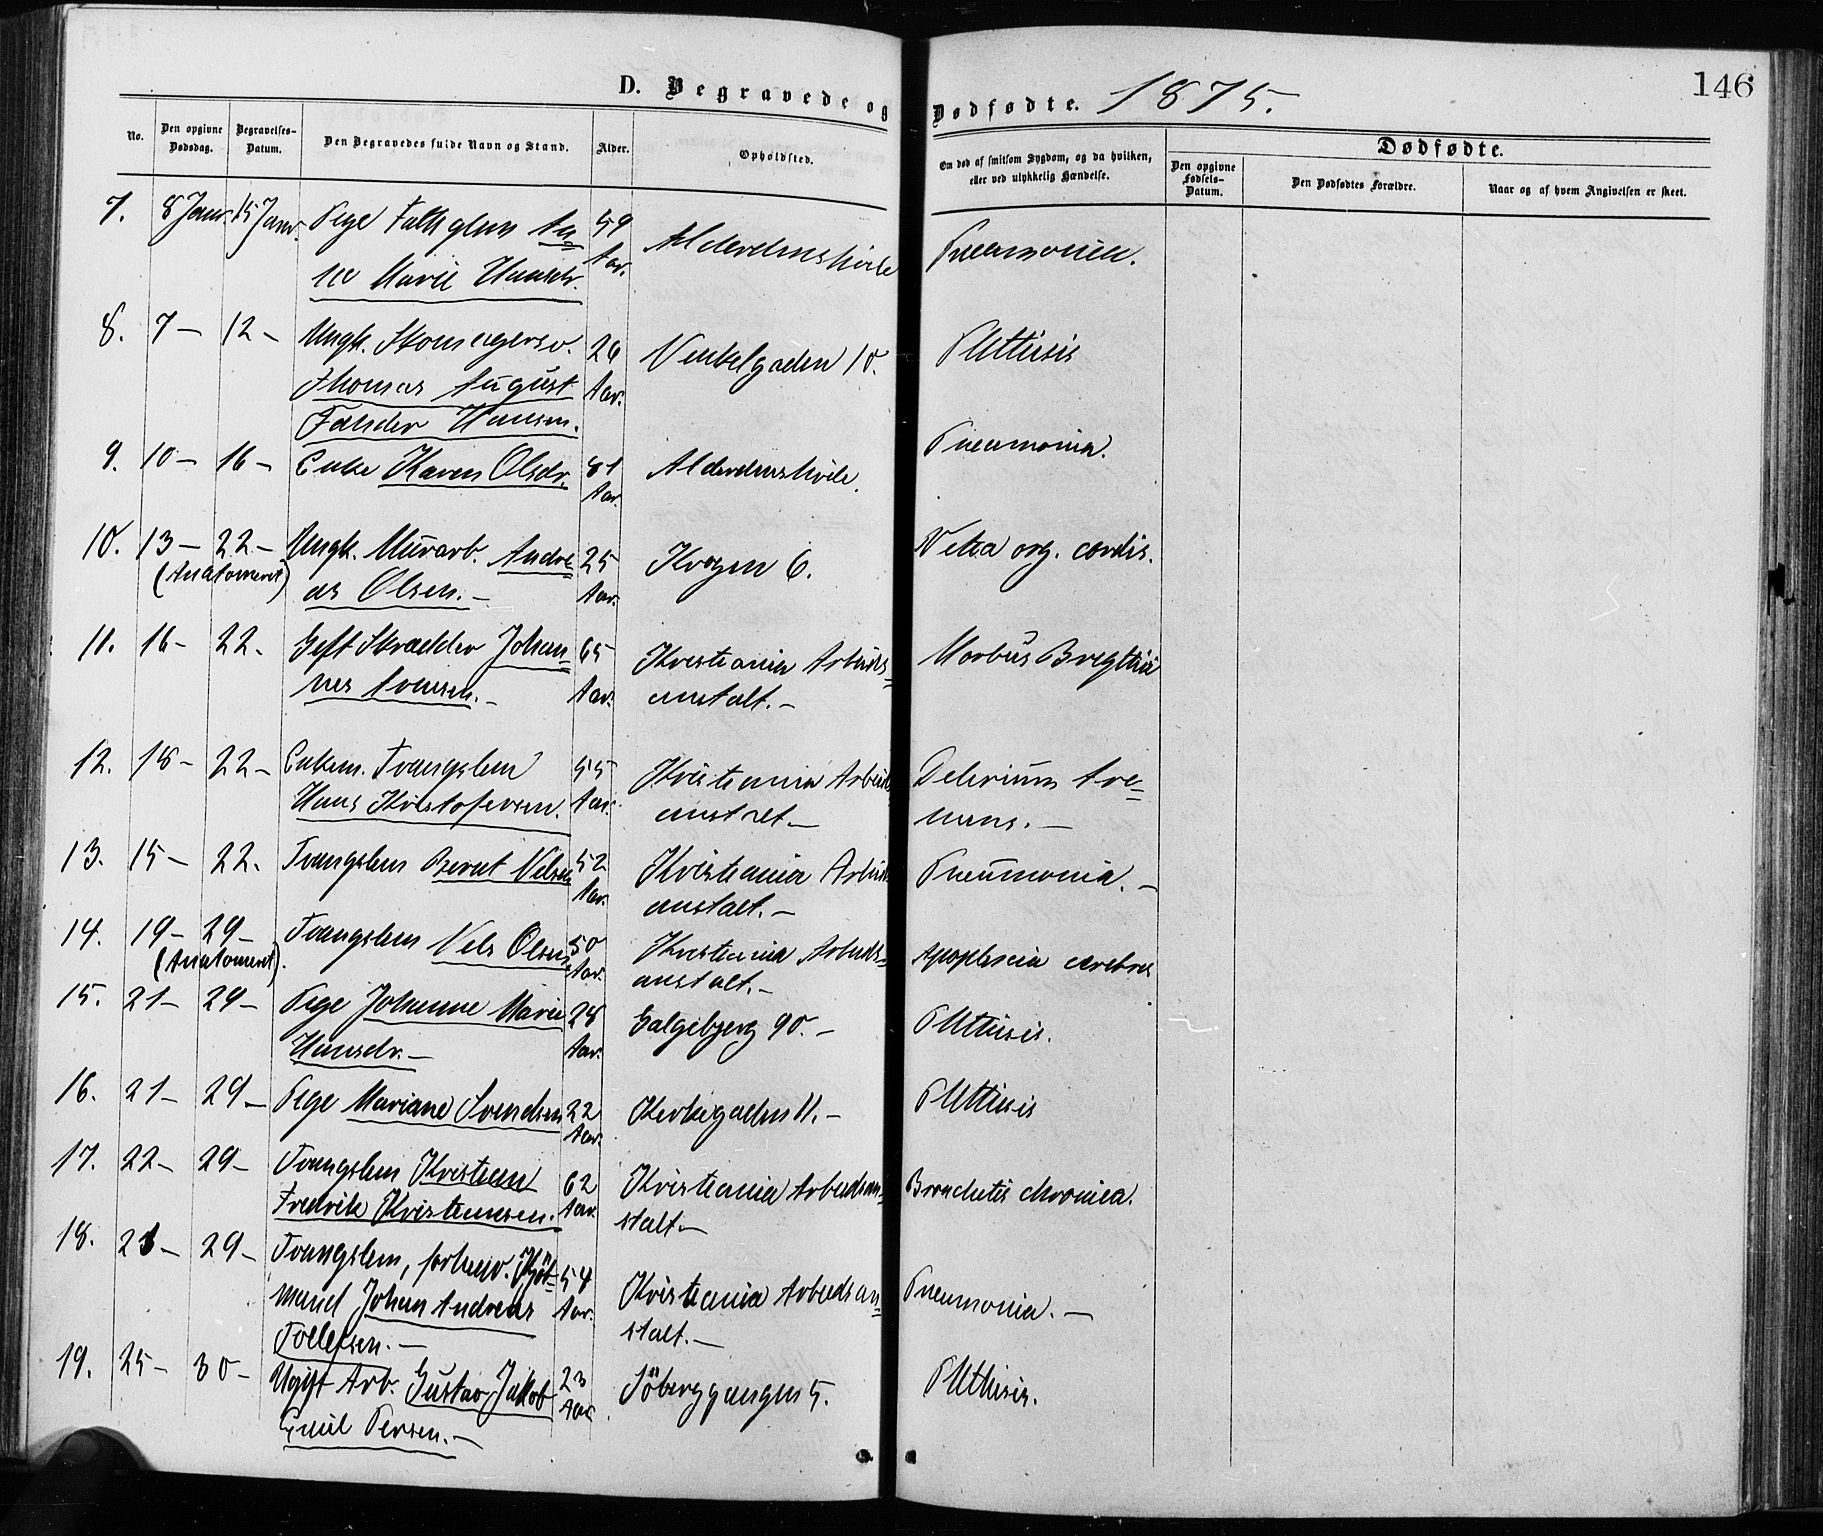 146
D. Begravede og Dødfødte. 1875.
No. Den opgivne Dødsdag. Begravelses-Datum. Den Begravedes fulde Navn og Stand. Alder. Opholdsted. Om død af smitsom Sygdom, og da hvilken, eller ved ulykkelig Hændelse. Dødfødte.
Den opgivne Fødsels-Datum. Den Dødfødtes Forældre. Naar og af hvem Angivelsen er skeet.
7. 8 Janr. 15 Janr. Pige Fattiglem An 59 Alderdomshvile Pneumonia.
ne Marie Hansdr. Aar.
8. 7 – 12 – Ungk. Skomagersv. 26 Vinkelgaden 10. Phthisis
Thomas August Aar.
Falsder Hansen.
9. 10 – 16 – Enke Karen Olsdr. 81 Alderdomshvile. Pneumonia.
Aar
10. 13 – 22 – Ungk. Murarb. Andre 25 Krogen 6. Vitia org. cordis.
(Anatomeret) as Olsen. – Aar.
11. 16 – 22. Gift Skrædder Johan= 65 Kristiania Arbeids= Morbus Brightii
nes Svensen. – Aar. anstalt. –
12. 18 – 22 – Enkem. Tvangslem 55 Kristiania Arbeids Delirium tre=
Hans Kristofersen. Aar. anstalt. – mens. –
13. 15 – 22. Tvangslem Bernt Nilsen 52 Kristiania Arbeids Pneumonia. –
Aar. anstalt. –
14. 19 – 29 – Tvangslem Nils Olsen 50 Kristiania Arbeids= Apoplexia cerebri
(Anatomeret). Aar. anstalt. –
15. 21 – 29 – Pige Johanne Marie 28 Galgebjerg 90. – Phthisis.
Hansdr. – Aar.
16. 21 – 29 – Pige Mariane Svendsen 22 Kirkegaden 11. – Phthisis
Aar.
17. 22 – 29 – Tvangslem Kristian 62 Kristiania Arbeidsan= Bronchitis chronica.
Fredrik Kristiansen. Aar. stalt. –
18. 23 – 29 – Tvangslem, forhenv. Kjöb= 54 Kristiania Arbeidsan= Pneumonia. –
mand Johan Andreas Aar. stalt. –
Tollefsen. –
19. 25 – 30 – Ugift Arb. Gustav Jakob 23 Söberggangen 5. Phthisis.
Emil Persen. – Aar